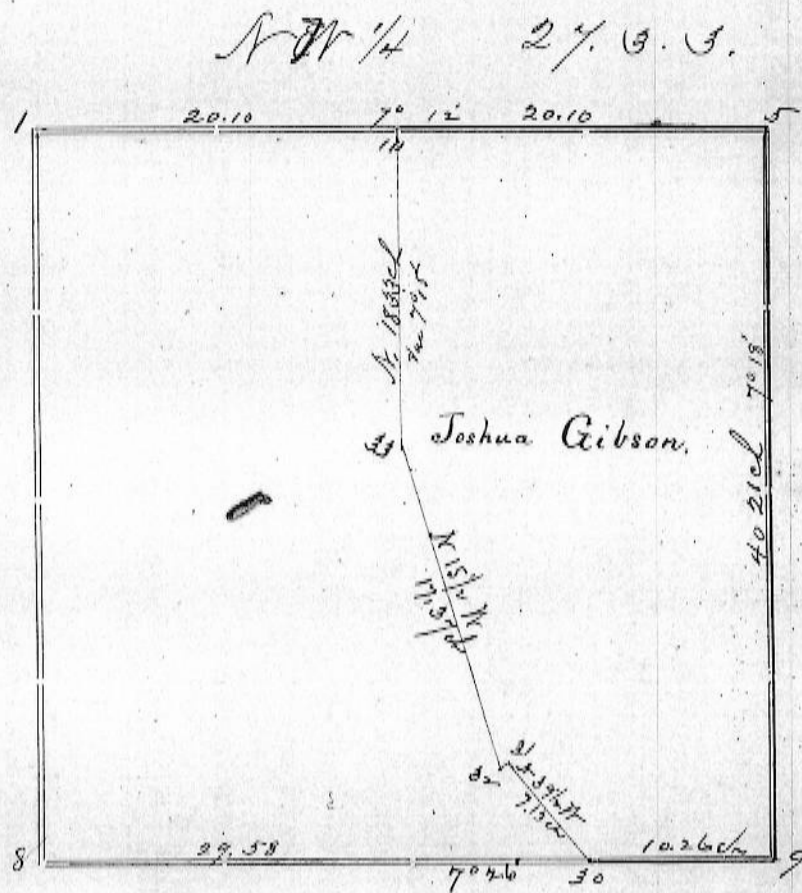 NW 1/4 27. 3. 3.
1 20.10 7° 12' 20.10 5
14
N. 1833 ch
Var 7° 15'
33
Joshua Gibson.
40 21 ch 7° 18'
N 15 1/2 W
17.37 ch
31
32
39 1/2 W
7 13 ch
8 29.58 7° 26' 30 10.26 ch 9